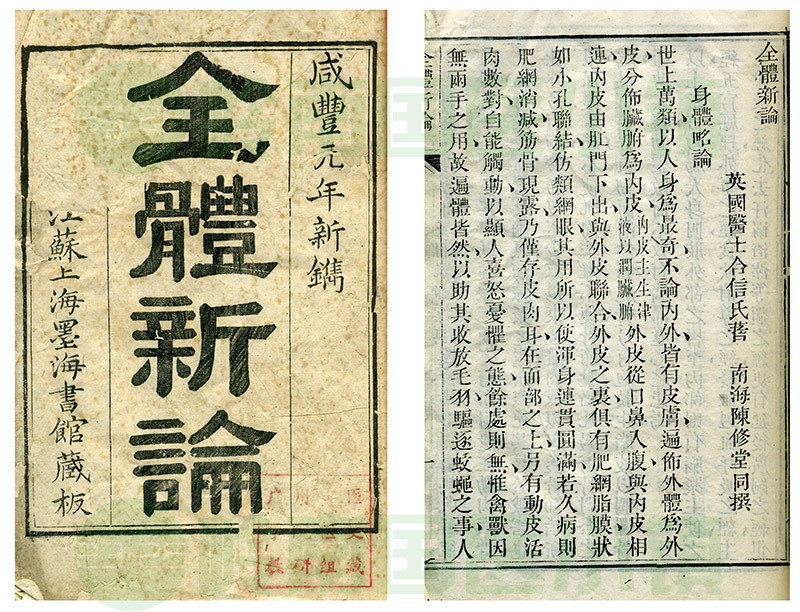 咸豐元年新鐫
全體新論
江蘇上海墨海書館藏板
全體新論
英國醫士合信氏著 南海陳修堂同撰
身體略論
世上萬類以人身爲最奇不論內外皆有皮膚遍佈外體爲外
皮分佈臟腑爲內皮內皮主生津液以潤臟腑外皮從口鼻入腹與內皮相
連內皮由肛門下出與外皮聯合外皮之裏俱有肥網脂膜狀
如小孔聯結仿類網眼其用所以使渾身連貫圓滿若久病則
肥網消減筋骨現露乃僅存皮肉耳在面部之上另有動皮活
肉數對自能觸動以顯人喜怒憂懼之態餘處則無惟禽獸因
無兩手之用故遍體皆然以助其收放毛羽驅逐蚊蠅之事人
全體新論
一